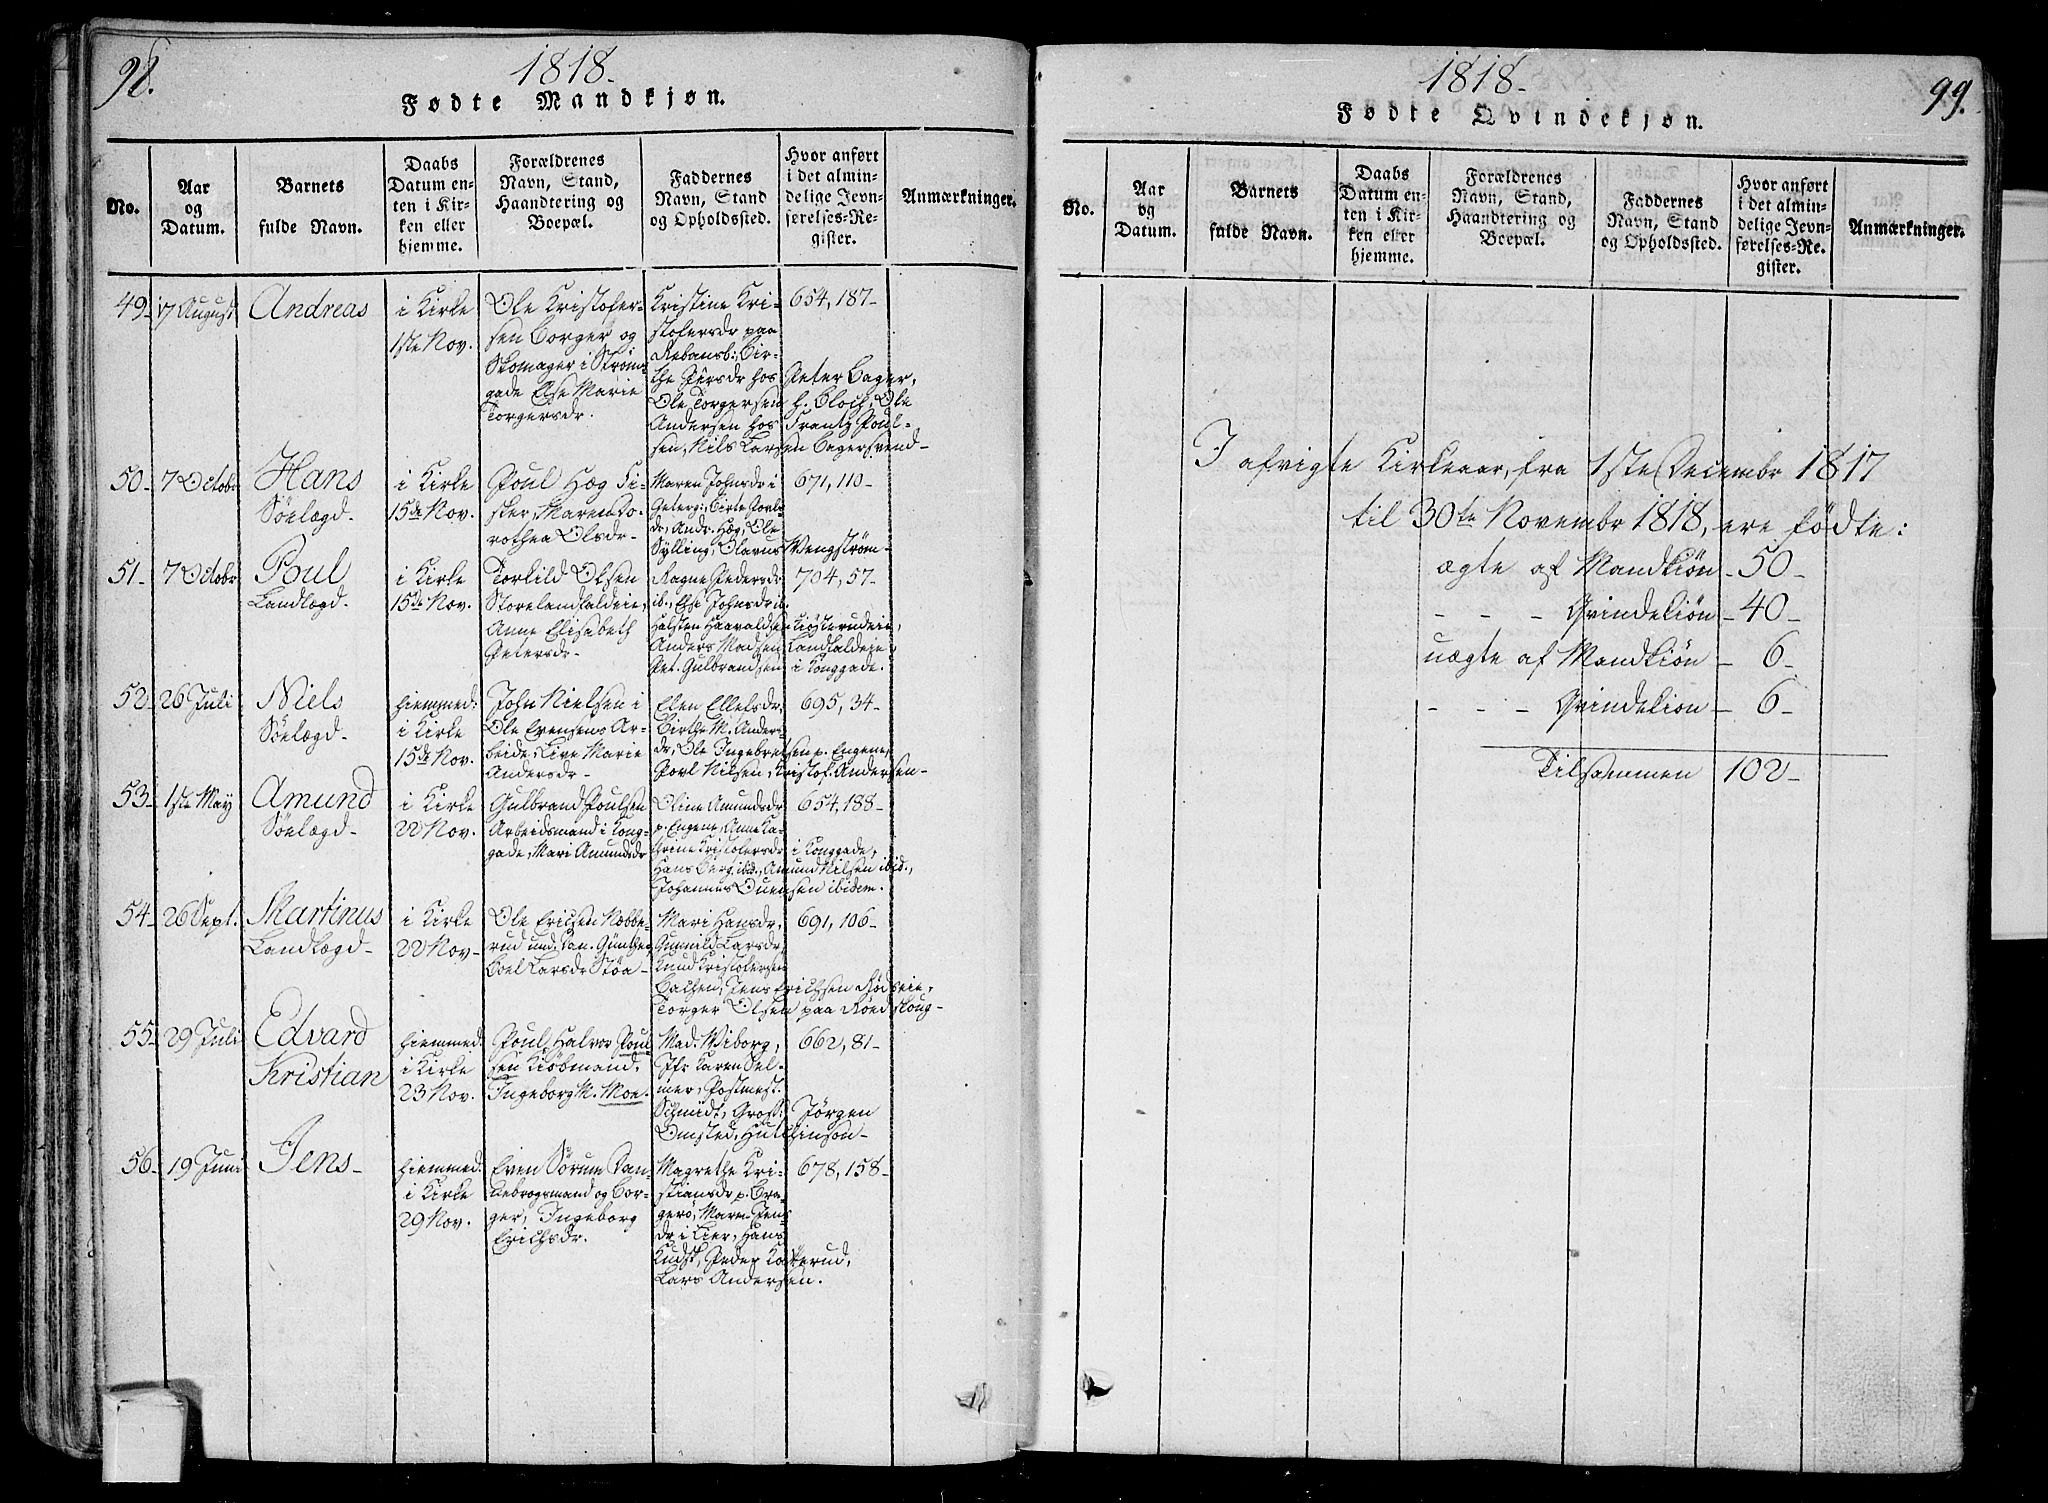 98.
1818.
Fødte Mandkjøn.
No.
Aar
og
Datum.
Barnets
fulde Navn.
Daabs
Datum en-
ten i Kir-
ken eller
hjemme.
Forældrenes
Navn, Stand,
Haandtering og
Boepæl.
Faddernes
Navn, Stand
og Opholdssted.
Hvor anført
i det almin-
delige Jevn-
førelses-Re-
gister.
Anmærkninger.
49-
17 August
Andreas
i Kirke
1ste Nov.
Ole Kristofer-
sen Borger og
Skomager i Strøm-
gade Else Marie
Torgersdr.
Kristine Kri-
stofersdr paa
Rebansb:, Bir-
the Persdr hos Peter Bager,
Ole Torgersen h. Bloch, Ole
Andersen hos Frantz Poul-
sen, Nils Larsen Bagersvend-
654, 187-
50-
7 Octobr
Hans
Søelægd-
i Kirke
15de Nov.
Poul Høg Fi-
sker, Maren Do-
rothea Olsdr-
Maren Johnsdr i
Geterg:, Birte Povls-
dr, Andr. Høg, Ole
Sylling, Olavus Wengstrøm-
671, 110-
51-
7 Octobr
Poul
Landlægd-
i Kirke
15de Nov.
Torkild Olsen
Storelandfaldeie,
Anne Elisabeth
Petersdr-
Ragne Pedersdr
ib., Else Johnsdr ib.
Halsten Haavaldsen Kiøsterudeie,
Anders Madsen Landfaldeie,
Pet. Gulbrandsen i Konggade.
704, 57-
52-
26 Juli
Niels
Søelægd-
hiemmed:
i Kirke
15de Nov.
John Nielsen i
Ole Evensens Ar-
beide, Live Marie
Andersdr-
Elen Ellefsdr,
Birthe M. Anders-
dr, Ole Ingebretsen p. Engene,
Povl Nilsen, Kristof. Andersen-
695, 34-
53-
1ste May
Amund
Søelægd-
i Kirke
22 Nov.
Gulbrand Poulsen
Arbeidsmand i Kong-
gade, Mari Amundsdr
Oline Amundsdr
p. Engene, Anne Ka-
thrine Kristofersdr i Konggade,
Hans Berg ibid., Amund Nilsen ibid.,
Johannes Ouensen ibidem.
654, 188-
54-
26 Sept.
Martinus
Landlægd-
i Kirke
22 Nov-
Ole Erichsen Nøbbe-
rud und. Can. Günther,
Boel Larsdr Støa-
Mari Hansdr,
Gunnild Larsdr,
Knud Kristofersen
Bachen, Jens Erichsen Rødseie,
Torger Olsen paa Røedskoug-
691, 106-
55-
29 Juli
Edvard
Kristian
hiemmed:
i Kirke
23 Nov.
Poul Halvor Poul-
sen Kiøbmand,
Ingeborg M. Moe.
Mad. Wiborg,
Jfr Karen Sel-
mer, Postmest.
Schmidt, Gross: Jørgen
Omsted, Hutchinson-
662, 81-
56-
19 Juni
Jens-
hiemmed:
i Kirke
29 Nov.
Even Sørum Dan-
nebrogsmand og Bor-
ger, Ingeborg
Erichsdr.
Magrethe Kri-
stiansdr p. Bra-
gerø, Maren Jens-
dr i Lier, Hans
Kudsk, Peder Kopperud,
Lars Andersen.
678, 158-
1818-
99.
Fødte Qvindekjøn.
No.
Aar
og
Datum.
Barnets
fulde Navn.
Daabs
Datum en-
ten i Kir-
ken eller
hjemme.
Forældrenes
Navn, Stand,
Haandtering og
Boepæl.
Faddernes
Navn, Stand
og Opholdssted.
Hvor anført
i det almin-
delige Jevn-
førelses-Re-
gister.
Anmærkninger.
I afvigte Kirkeaar, fra 1ste Decembr 1817
til 30te Novembr 1818, ere fødte:
ægte af Mandkiøn - 50-
- - - Qvindekiøn - 40-
uægte af Mandkiøn - 6-
- - - Qvindekiøn - 6-
Tilsammen 102-